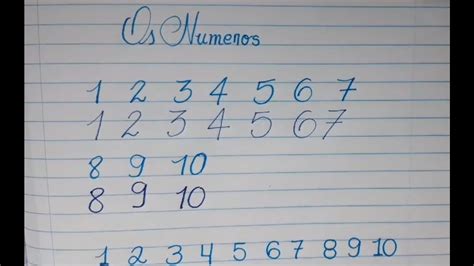 Os Numeros
1 2 3 4 5 6 7
1 2 3 4 5 6 7
8 9 10
8 9 10
1 2 3 4 5 6 7 8 9 10